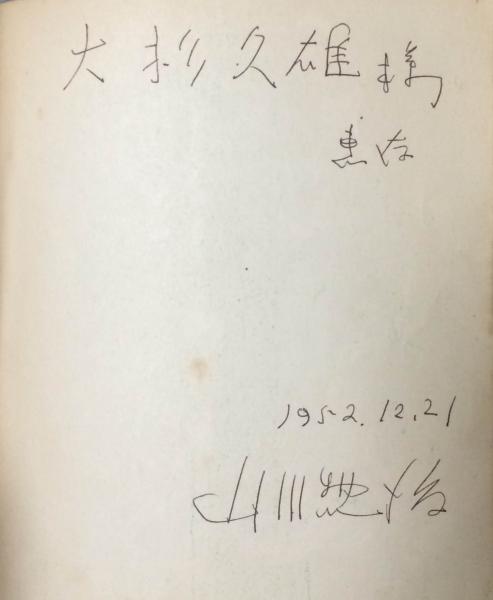 大杉久雄様
恵存
1952.12.21
山川惣治